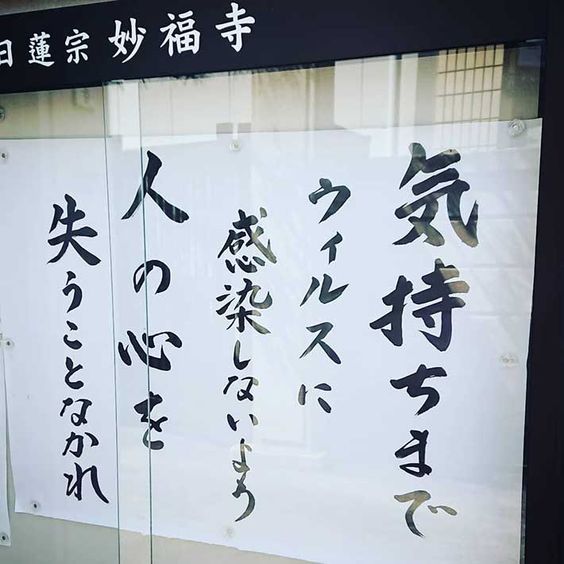 日蓮宗 妙福寺
気持ちまで
ウィルスに
感染しないよう
人の心を
失うことなかれ